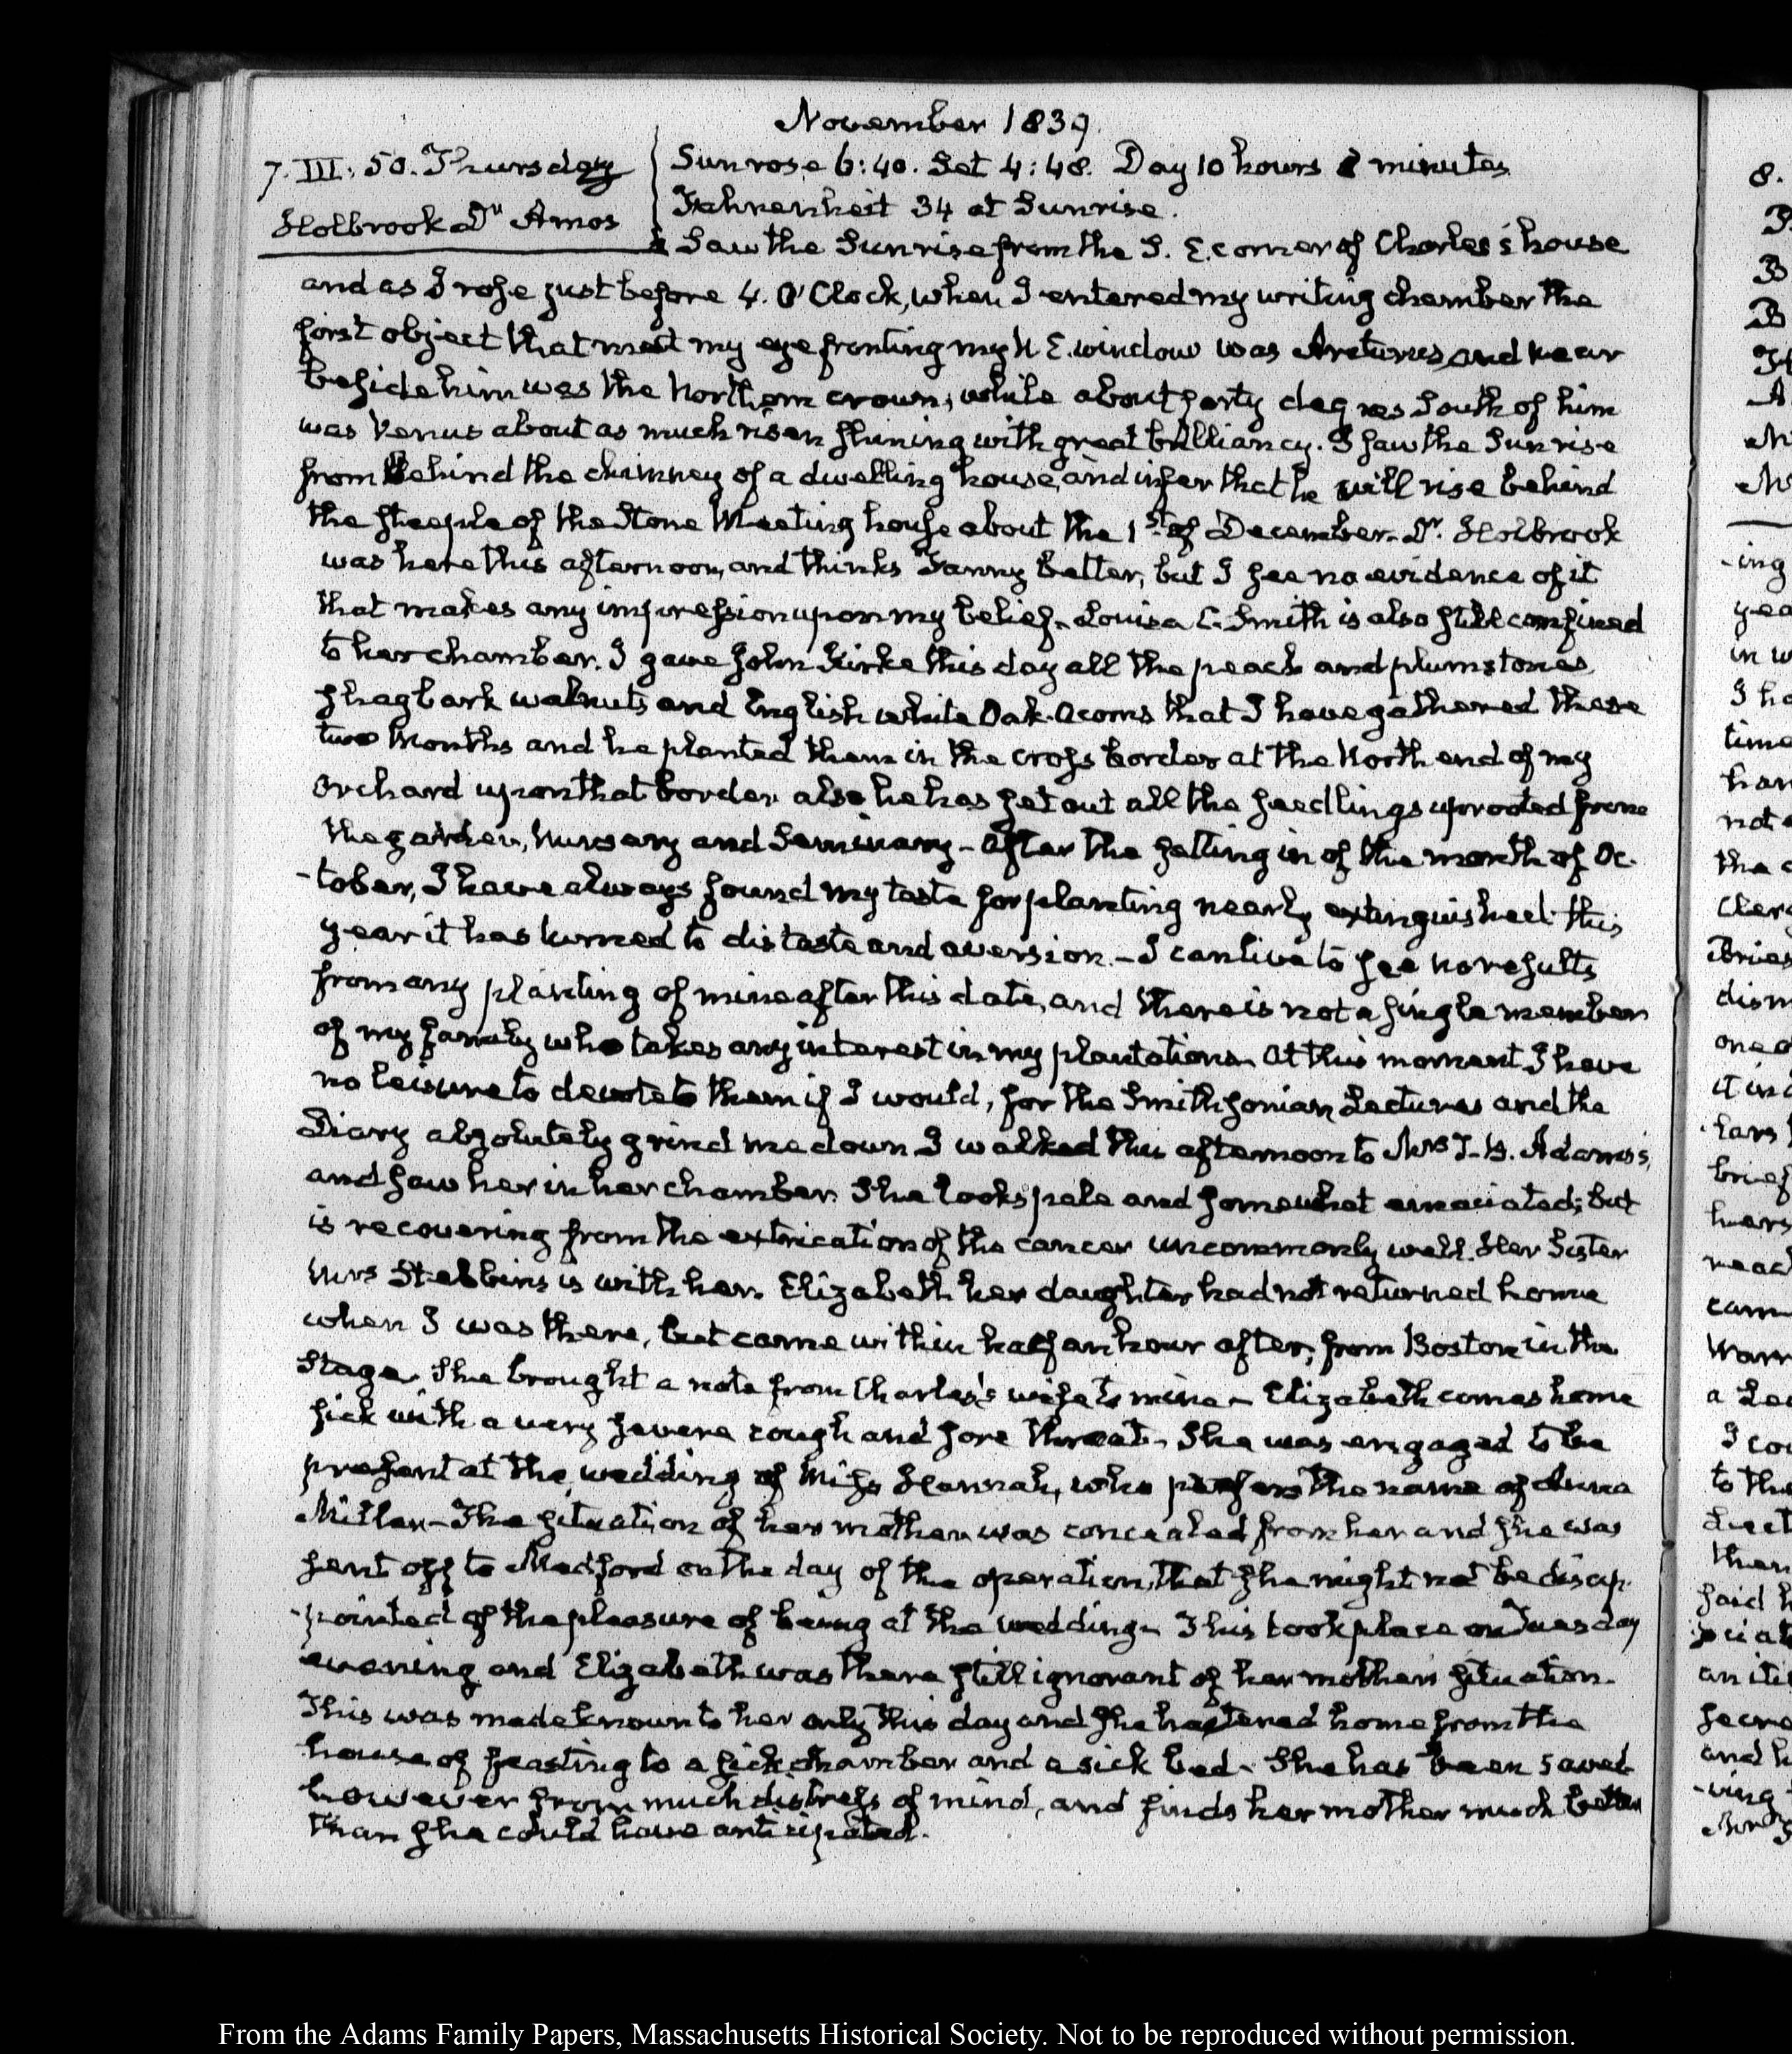 November 1839.
7. III: 50. Thursday
Holbrook Dr Amos
Sun rose 6:40. Set 4:48. Day 10 hours 8 minutes
Fahrenheit 34 at Sunrise.
Saw the Sunrise from the S. E. corner of Charles's house
and as I rose just before 4. O'Clock, when I entered my writing chamber the
first object that met my eye fronting my N E. window was Arcturus, and near
beside him was the Northern crown, while about forty degrees South of him
was Venus about as much risen shining with great brilliancy. I saw the Sun rise
from behind the chimney of a dwelling house, and infer that he will rise behind
the steeple of the Stone Meeting house about the 1st of December. Dr. Holbrook
was here this afternoon, and thinks Fanny better, but I see no evidence of it
that makes any impression upon my belief. Louisa C. Smith is also still confined
to her chamber. I gave John Kirke this day all the peach and plumstones
shagbark walnuts and English white Oak-acorns that I have gathered these
two Months and he planted them in the cross border at the North end of my
Orchard upon that border also he has set out all the seedlings uprooted from
the garden, Nursery and Seminary - After the setting in of the month of Oc-
-tober, I have always found my taste for planting nearly extinguished: this
year it has turned to distaste and aversion. - I can live to see no results
from any planting of mine after this date, and there is not a single member
of my family who takes any interest in my plantations. At this moment I have
no leisure to devote to them if I would, for the Smithsonian Lectures and the
Diary absolutely grind me down. I walked this afternoon to Mrs T. B. Adams's,
and saw her in her chamber. She looks pale and somewhat emaciated; but
is recovering from the extrication of the cancer uncommonly well. Her Sister
Mrs Stebbins is with her. Elizabeth her daughter had not returned home
when I was there, but came within half an hour after, from Boston in the
Stage. She brought a note from Charles's wife to mine - Elizabeth comes home
sick with a very severe cough and sore throat. She was engaged to be
present at the wedding of Miss Hannah, who prefers the name of Anna
Miller - The situation of her mother was concealed from her and she was
sent off to Medford on the day of the operation, that she might not be disap-
-pointed of the pleasure of being at the wedding. This took place on Tuesday
evening and Elizabeth was there still ignorant of her mother's situation.
This was made known to her only this day and she hastened home from the
house of feasting to a sick chamber and a sick bed. She has been saved
however from much distress of mind, and finds her mother much better
than she could have anticipated.
From the Adams Family Papers, Massachusetts Historical Society. Not to be reproduced without permission.